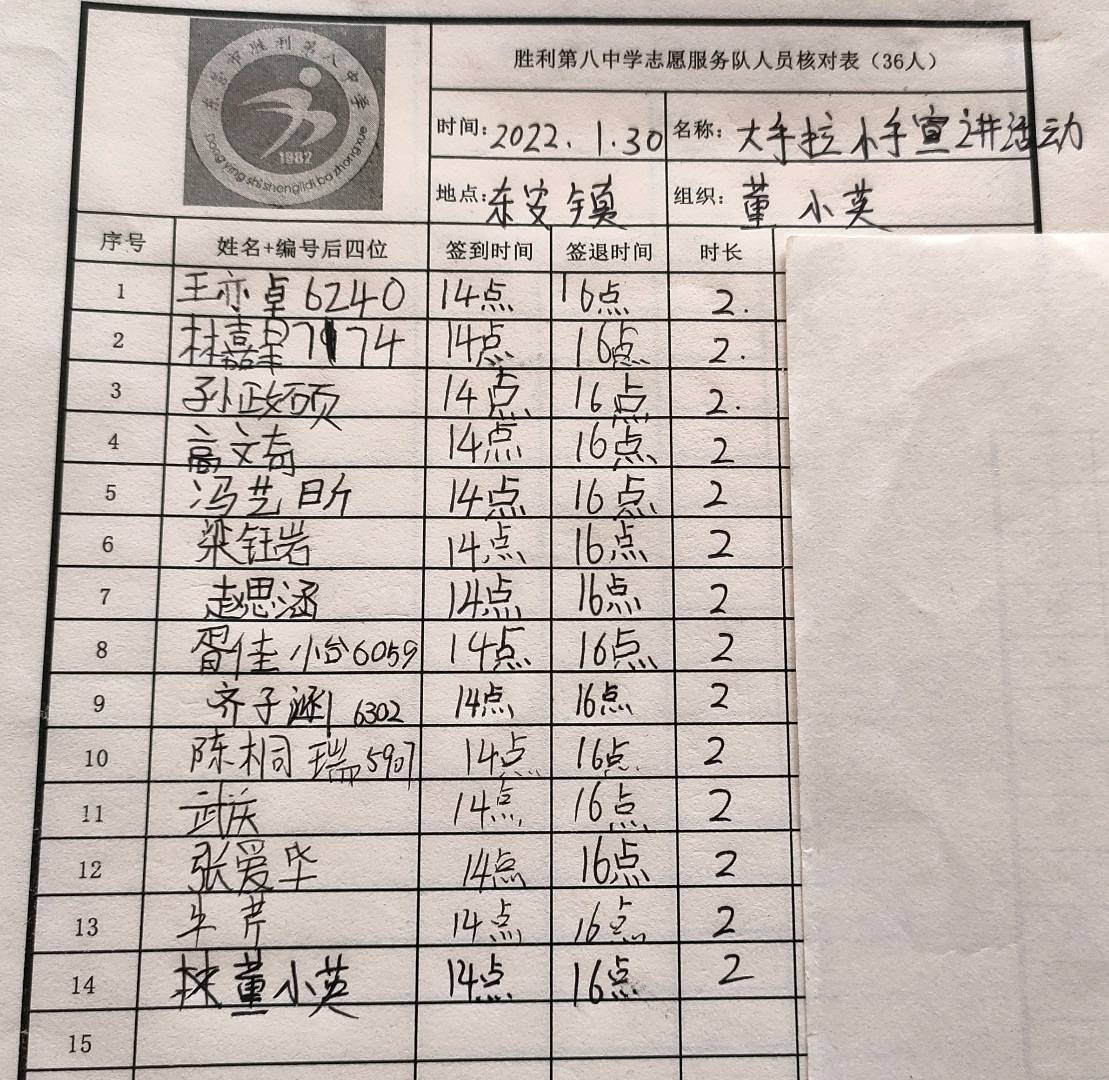 东营市胜利第八中学
1982
Dong ying shi shengli di ba zhong xue
胜利第八中学志愿服务队人员核对表（36人）
时间：2022.1.30 名称：大手拉小手宣讲活动
地点：东安镇 组织：董小英
序号 姓名+编号后四位 签到时间 签退时间 时长
1 王亦卓6240 14点 16点 2.
2 林 7174 14点 16点 2.
3 孙政硕 14点 16点 2.
4 高文奇 14点 16点 2
5 冯艺昕 14点 16点 2
6 梁钰岩 14点 16点 2
7 赵思涵 14点 16点 2
8 胥佳 6059 14点 16点 2
9 齐子涵 6302 14点 16点 2
10 陈桐瑞5907 14点 16点 2
11 武庆 14点 16点 2
12 张爱华 14点 16点 2
13 牛芹 14点 16点 2
14 董小英 14点 16点 2
15